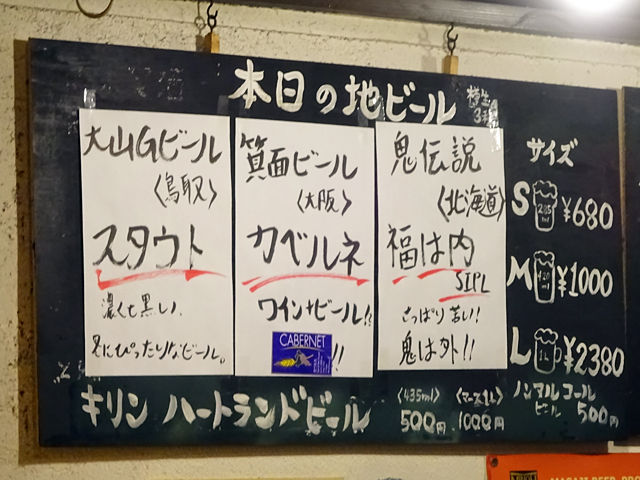 本日の地ビール
樽生
3種
大山Gビール
〈鳥取〉
スタウト
濃くて黒い、
冬にぴったりなビール。
箕面ビール
〈大阪〉
カベルネ
ワイン+ビール!!
CABERNET
!!
鬼伝説
〈北海道〉
福は内
SIPL
さっぱり苦い!!
鬼は外!!
サイズ
S ¥680
M ¥1000
L 1L ¥2380
キリン ハートランドビール
〈435ml〉
500円
〈マース1L〉
1000円
ノンアルコール
ビール 500円